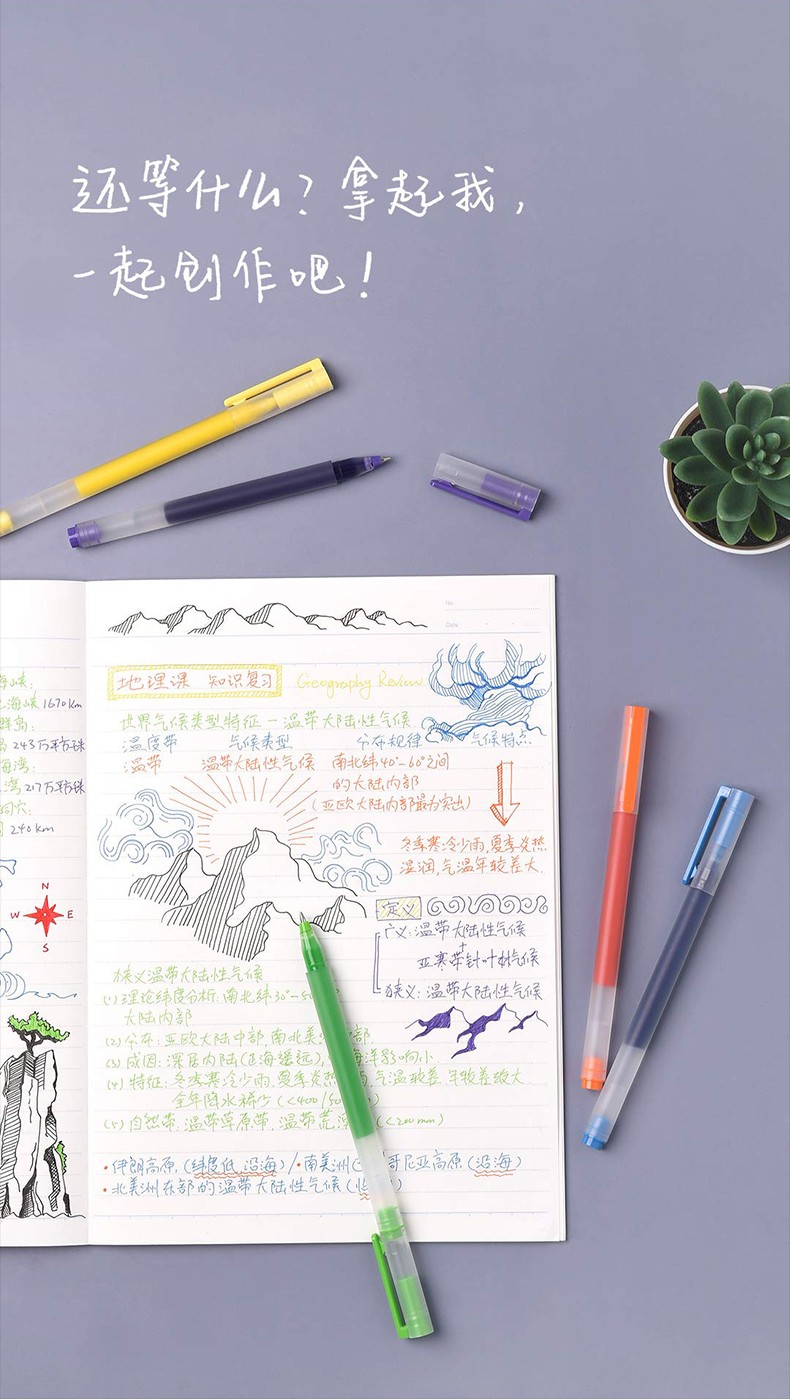 还等什么?拿起我,
一起创作吧!
No.
Date
海峡:
海峡 1670km
群岛:
243万平方km
海湾:
湾 217万平方km
240km
N
W E
S
地理课 知识复习 Geography Review
世界气候类型特征-温带大陆性气候
温度带 气候类型 分布规律 气候特点
温带 温带大陆性气候 南北纬40°-60°之间
的大陆内部
(亚欧大陆内部最为突出)
冬季寒冷少雨,夏季炎热
湿润,气温年较差大.
定义
广义:温带大陆性气候
+
亚寒带针叶林气候
狭义:温带大陆性气候
狭义温带大陆性气候
(1)理论纬度分析:南北纬30°-
大陆内部
(2)分布:亚欧大陆中部,南北美 部
(3)成因:深居内陆(距海遥远), 海洋影响小
(4)特征:冬季寒冷少雨,夏季炎热 雨,气温 差,年较差较大
全年降水稀少(<400/50 )
(5)自然带:温带草原带,温带荒漠 (<200mm)
•伊朗高原(纬度低,沿海)/•南美洲 哥尼亚高原(沿海)
•北美洲 部的温带大陆性气候(